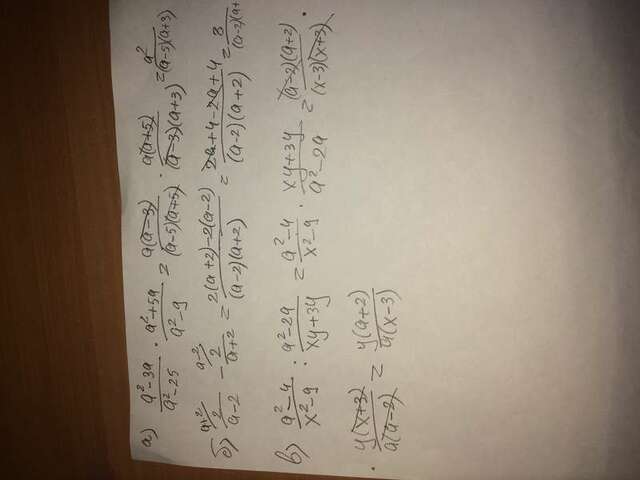 а) (a²-3a)/(a²-25) · (a²+5a)/(a²-9) = a(a-3)/(a-5)(a+5) · a(a+5)/(a-3)(a+3) = a²/(a-5)(a+3)
б) 2/(a-2) - 2/(a+2) = (2(a+2)-2(a-2))/(a-2)(a+2) = (2a+4-2a+4)/(a-2)(a+2) = 8/(a-2)(a+
в) (a²-4)/(x²-9) : (a²-2a)/(xy+3y) = (a²-4)/(x²-9) · (xy+3y)/(a²-2a) = (a-2)(a+2)/(x-3)(x+3) ·
· y(x+3)/a(a-2) = y(a+2)/a(x-3)